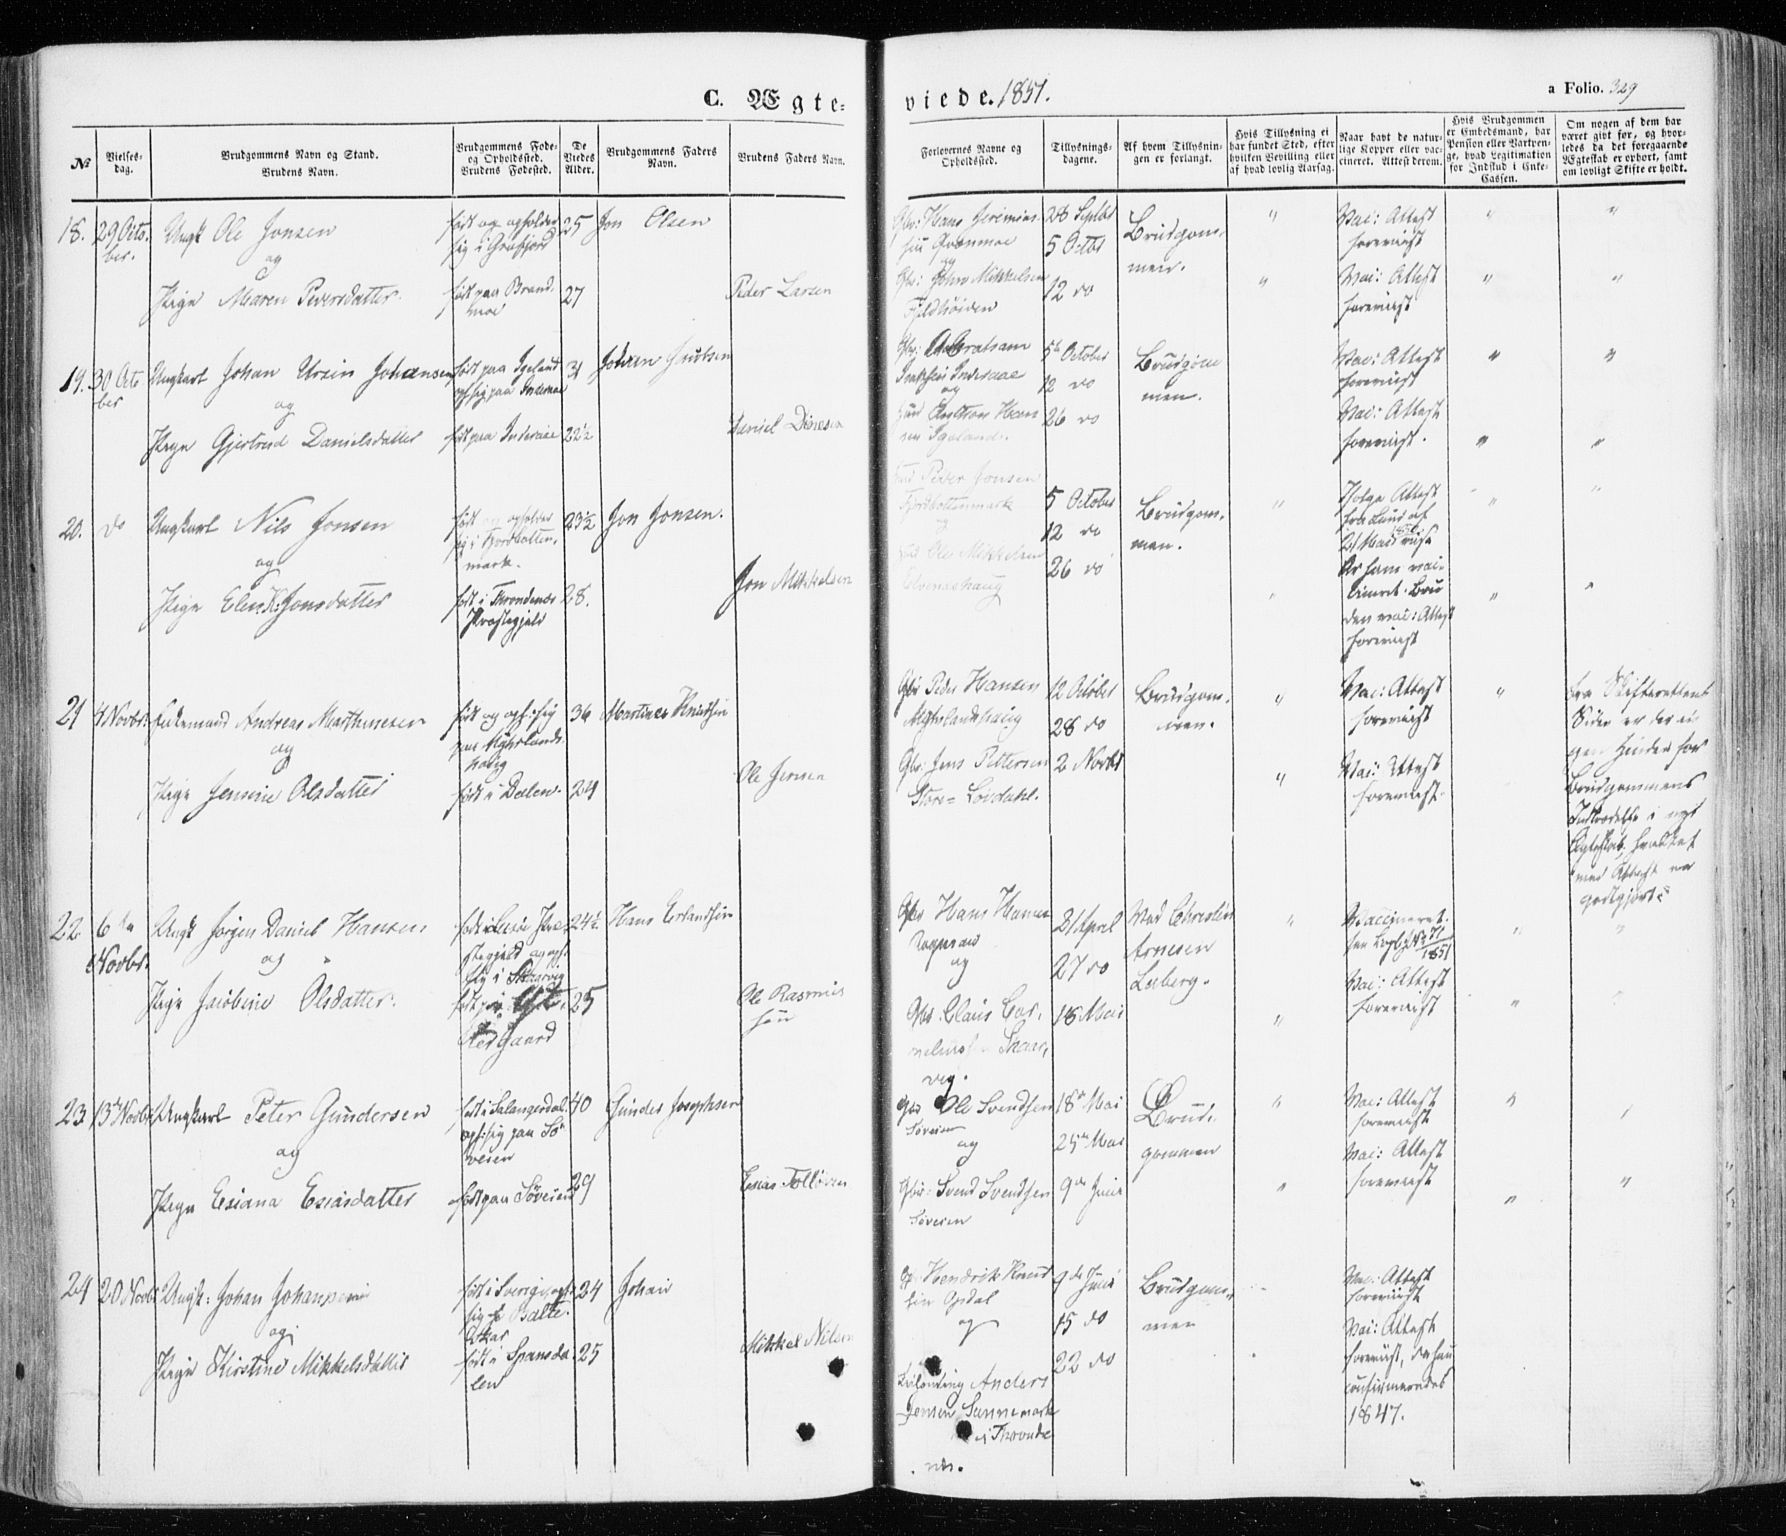 C. Ægte-
viede. 1851.
a Folio. 329
No
Vielses-
dag.
Brudgommens Navn og Stand.
Brudens Navn.
Brudgommens Føde-
og Opholdssted.
Brudens Fødested.
De
Viedes
Alder.
Brudgommens Faders
Navn.
Brudens Faders Navn.
Forlovernes Navne og
Opholdssted.
Tillysnings-
dagene.
Af hvem Tillysnin-
gen er forlangt.
Hvis Tillysning ei
har fundet Sted, efter
hvilken Bevilling eller
af hvad lovlig Aarsag.
Naar havt de natur-
lige Kopper eller vac-
cineret. Attest derom.
Hvis Brudgommen
er Embedsmand, har
Pension eller Vartpen-
ge, hvad Legitimation
for Indskud i Enke-
Cassen.
Om nogen af dem har
været gift før, og hvor-
ledes da det foregaaende
Ægteskab er ophørt, samt
om lovligt Skifte er holdt.
18. 29 Octo-
ber.
Ungk Ole Jonsen
og
Pige Maren Pedersdatter.
født og opholder
sig i Gratfjord
født paa Brand-
moe
25
27
Jon Olsen
Peder Larsen
Gbr: Hans Jeremias-
sen Grønmoe
og
Gbr: Johan Mikkelsen
Fjeldhøiden
28 Septbr
5 Octbr
12 do
Brudgom-
men.
Vac: Attest
foreviist
Vac: Attest
foreviist
19. 30 Octo
ber
Ungkarl Johan Ursin Johansen
og
Pige Gjertrud Danielsdatter
født paa Igeland
oph sig paa Indemoe
født paa Inderaae
31
22½
Johan
Daniel
Gbr: Abraham
Inderaae
og
Hansen Igeland.
5te October
12 do
26 do
Brudgom
men.
Vac: Attest
foreviist
Vac: Attest
foreviist.
20. do
Ungkarl Nils Jonsen
og
Pige Elen K: Jonsdatter
født og opholder
sig i Fjordbotten-
mark.
født i Throndenæs
Præstegjeld
23½
28.
Jon Jonsen.
Jon Mikkelsen
Peder Jonsen
Fjordbottenmark
og
Ole Mikkelsen
5 October
12 do
26 do
Brudgom-
men.
Ifølge Attest
fra Lund af
21 Mai
er han vac-
cineret. Bru
den vac: Attest
foreviist
21 4 Novbr:
Enkemand Andreas Marthinesen
og
Pige Jensine Olsdatter
født og oph: sig
paa Myhrlands-
haug
født i Dalen.
36
24
Martines Knudsen
Ole Jensen
Gbr Peder Hansen
Myhrlandshaug
Gbr: Jens Pettersen
Store- Løvdahl.
12 October
28 do
2 Novbr
Brudgom-
men.
Vac: Attest
foreviist
Vac: Attest
foreviist.
fra Skifterettens
Side er der in
gen Hinder for
Brudgommens
Indtrædelse i nyt
Ægteskab, hvilket
med Attest er
godtgjort.
22 6te
Novbr.
Ungk Jørgen Daniel Hansen
og
Pige Jacobine Olsdatter.
født i Præ-
stegjeld og oph:
sig i Skarvig
født paa
Gaard
24½
25
Hans Erlandsen
Ole Rasmus
sen
Gbr Hans Hansen
og
Gbr: Claus Cor-
neliussen Skar-
vig.
21 April
27 do
18 Mai
Ved Christen
Arnesen
Leiberg.
Vaccineret.
1851
Vac: Attest
foreviist
23 13de Novbr
Ungkarl Peter Gundersen
og
Pige Esiana Esaiasdatter
født i Salangsdal
oph: sig paa Sø
veien
født paa Søveien
40
29
Gunder Josephsen
Esaias Tolløvsen
Gbr Ole Svendsen
Søveien
og
Gbr: Svend Svendsen
Søveien
18de Mai
25de Mai
9de Juni
Brud-
gommen
Vac: Attest
foreviist
Vac: Attest
foreviist
24 20 Novbr
Ungk: Johan Johansen
og
Pige Kirstine Mikkelsdatter
født i Sverrig oph:
sig p Balte-
Eskar
født i Spansda-
len
24
25
Johan
Mikkel Nilsen
Gbr Hendrik Knud
sen Opdal
og
Anders
Jensen Sannemark
i Thronde
næs.
9de Juni
15 do
22 do
Brudgom-
men
Vac: Attest
foreviist
Vac: Attest
foreviist, da hun
confirmeredes
1847.